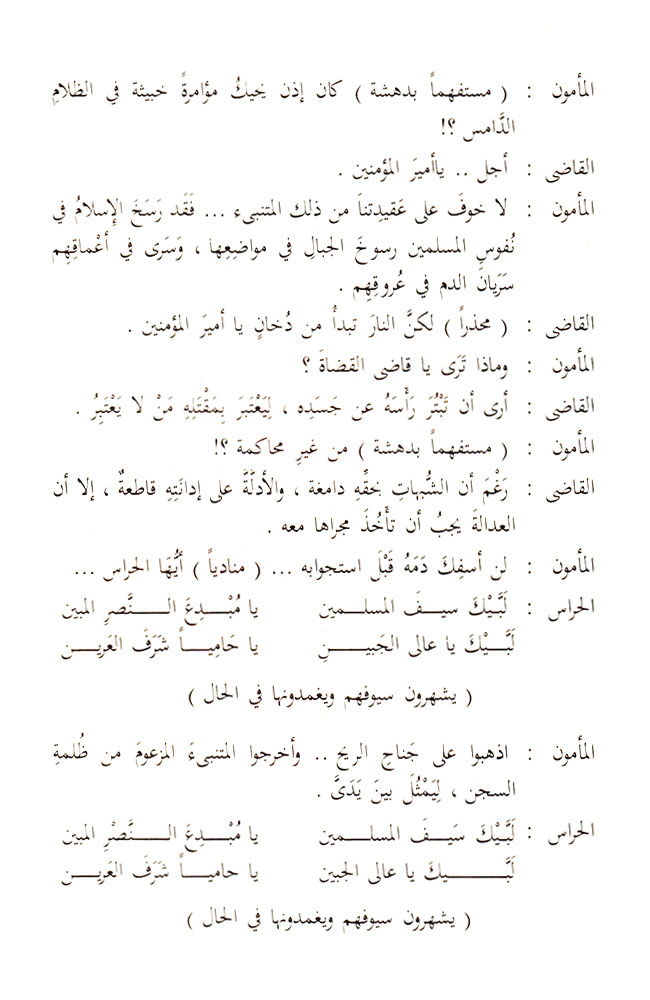 المأمون : ( مستفهماً بدهشة ) كان إذن يحيكُ مؤامرةً خبيثة في الظلامِ
الدَّامس ؟!
القاضى : أجل .. ياأميرَ المؤمنين .
المأمون : لا خوفَ على عَقيدتِناَ من ذلك المتنبىء ... فَقَد رَسَخَ الإِسلامُ في
نُفوسِ المسلمين رسوخَ الجبالِ في مواضعِها ، وَسَرَى في أعْماقِهِم
سَرَيانَ الدم في عُروقِهِم .
القاضى : ( محذراً ) لكنَّ النارَ تبدأُ من دُخانٍ يا أميرَ المؤمنين .
المأمون : وماذا تَرَى يا قاضى القضاةَ ؟
القاضى : أرى أن تَبْتُرَ رَأْسَهُ عن جَسَدِه ، لِيَعْتَبَرَ بِمَقْتَلِهِ مَنْ لا يَعْتَبِرُ .
المأمون : ( مستفهماً بدهشة ) من غيرِ محاكمة ؟!
القاضى : رَغْمَ أن الشُّبهاتِ بحقِّهِ دامغة ، والأدلَّةَ على إدانَتِهِ قاطعةٌ ، إلا أن
العدالةَ يجبُ أن تأْخُذَ مجراها معه .
المأمون : لن أسفِكَ دَمَهُ قَبْلَ استجوابه ... ( منادياً ) أيُّها الحراس ...
الحراس : لَبَّيْكَ سيـفَ المسلـمين يا مُبْـدِعَ النَّـصرِ المبين
لَبَّـيْكَ يا عالى الجَبيـنِ يا حَامِيـاً شَرَفَ العَريـن
( يشهرون سيوفهم ويغمدونها في الحال )
المأمون : اذهبوا على جَناحِ الريح .. وأخرجوا المتنبىءَ المزعومَ من ظُلمةِ
السجن ، لِيَمْثُلَ بينَ يَدَىَّ .
الحراس : لَبَّيْكَ سَيـفَ المسلـمين يا مُبْـدِعَ النَّـصْرِ المبين
لَبَّـيكَ يا عالى الجبين يا حامياً شَرَفَ العَريـن
( يشهرون سيوفهم ويغمدونها في الحال )